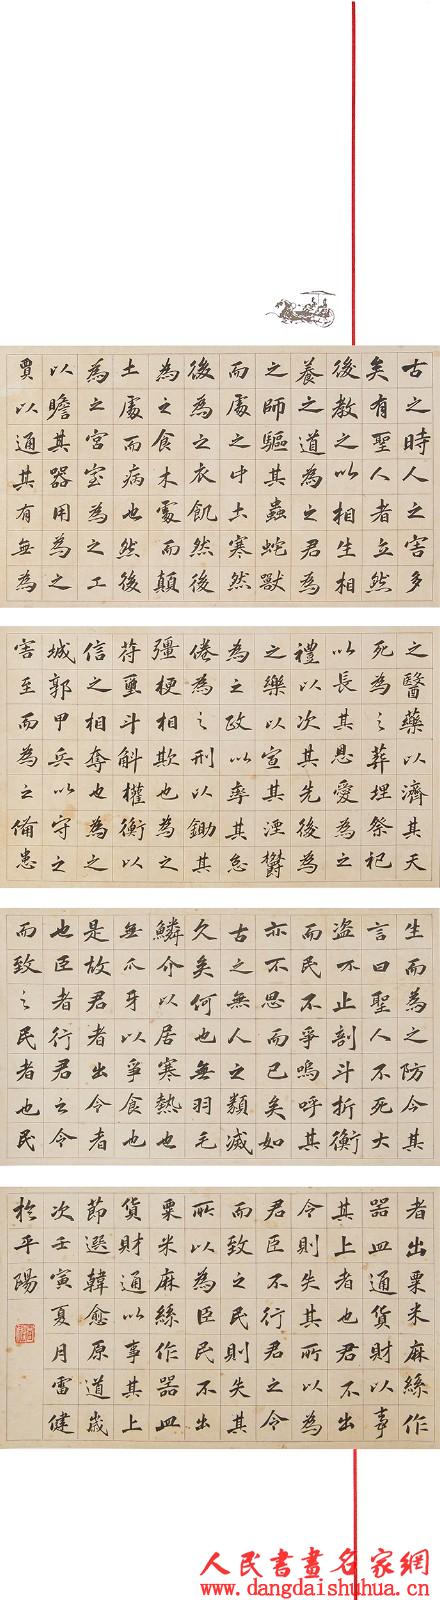 古之時人之害多
矣有聖人者立然
後教之以相生相
養之道為之君為
之師驅其蟲蛇獸
而處之中土寒然
後為之衣飢然後
為之食木處而顛
土處而病也然後
為之宮室為之工
以贍其器用為之
賈以通其有無為
之醫藥以濟其夭
死為之葬埋祭祀
以長其恩愛為之
禮以次其先後為
之樂以宣其湮鬱
為之政以率其怠
倦為之刑以鋤其
彊梗相欺也為之
符璽斗斛權衡以
信之相奪也為之
城郭甲兵以守之
害至而為之備患
生而為之防今其
言曰聖人不死大
盜不止剖斗折衡
而民不爭嗚呼其
亦不思而已矣如
古之無人之類滅
久矣何也無羽毛
鱗介以居寒熱也
無爪牙以爭食也
是故君者出令者
也臣者行君之令
而致之民者也民
者出粟米麻絲作
器皿通貨財以事
其上者也君不出
令則失其所以為
君臣不行君之令
而致之民則失其
所以為臣民不出
粟米麻絲作器皿
貨財通以事其上
節選韓愈原道歲
次壬寅夏月雷健
於平陽
人民書畫名家網
www.dangdaishuhua.cn